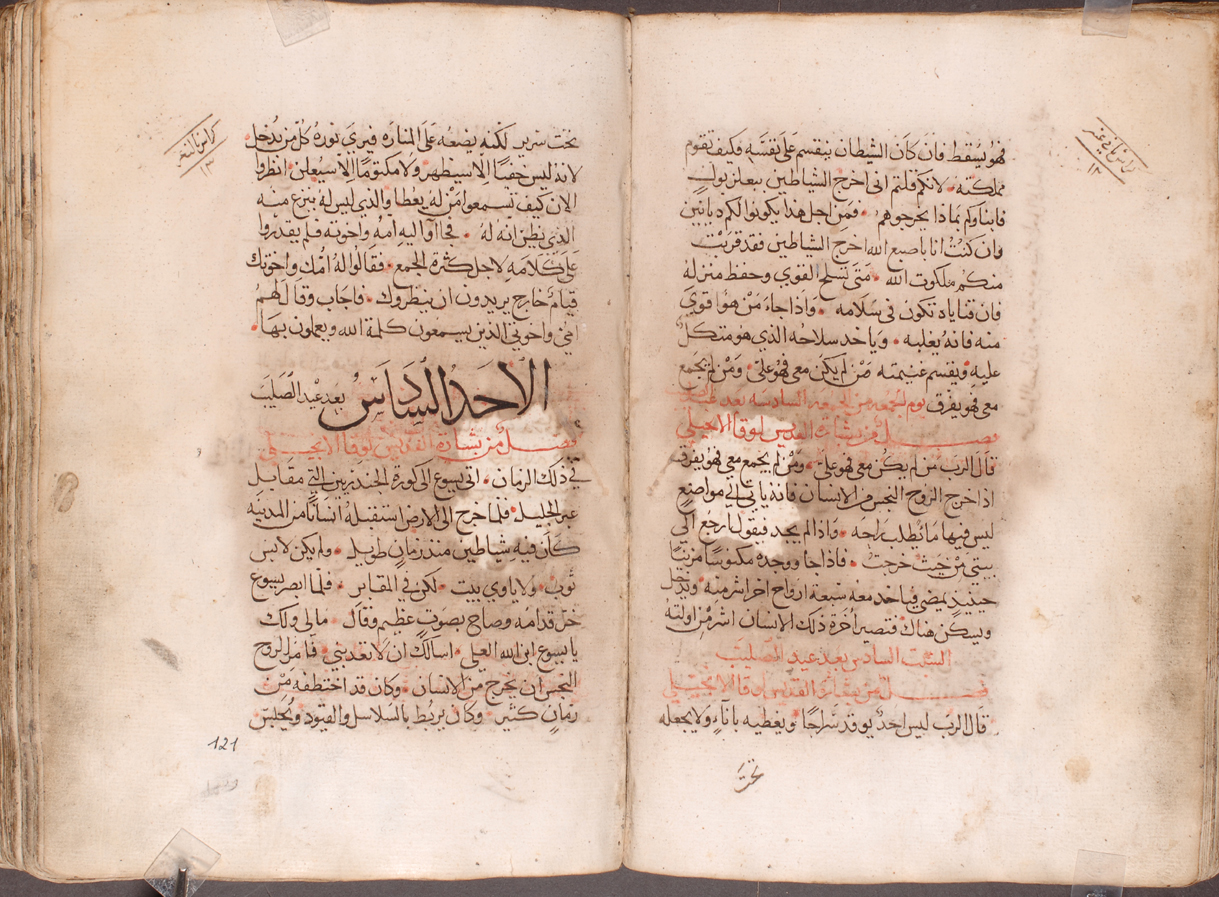 كراس ثاني عشر
١٢
فهو يسقط فان كان الشيطان ينقسم على نفسه فكيف تقوم
مملكته لانكم قلتم اني اخرج الشياطين ببعلزبول
فابناوكم بماذا يخرجوهم فمن اجل هذا يكونوا لكم ديانين
فان كنت انا باصبع الله اخرج الشياطين فقد قربت
منكم ملكوت الله متى تسلح القوي وحفظ منزله
فان قناياه تكون في سلامه واذا جاء من هو اقوى
منه فانه يغلبه وياخد سلاحه الذي هو متكل
عليه ويقسم غنيمته من لم يكن معي فهو علي ومن لم يجمع
معي فهو يفرق يوم الجمعه من الجمعه السادسه بعد
فصل من بشارة القديس لوقا الانجيلي
قال الرب من لم يكن معي فهو علي ومن لم يجمع معي فهو يفرق
اذا خرج الروح النجس من الانسان فانه ياتي الي مواضع
ليس فيها ما يطلب راحه واذا لم يجد فيقول ارجع الي
بيتي من حيث خرجت فاذا جا ووجده مكنوسا مزينا
حينيذ يمضي فياخد معه سبعة ارواح اخر اشر منه ويدخل
ويسكن هناك فتصير اخرة ذلك الانسان اشر من اولته
السبت السادس بعد عيد الصليب
فصل من بشارة القديس لوقا الانجيلي
قال الرب ليس احد يوقد سراجا ويغطيه باناء ولا يجعله
تحت
كراس ثالث عشر
١٣
تحت سرير لكنه يضعه على المناره فيرى نوره كل من يدخل
لانه ليس خفيا الا سيظهر ولا مكتوما الا سيعلن انظروا
الان كيف تسمعوا من له يعطا والذي ليس له ينزع منه
الذي يظن انه له فجا اليه امه واخوته فلم يقدروا
على كلامه لاجل كثرة الجمع فقالوا له امك واخوتك
قيام خارج يريدون ان ينظروك فاجاب وقال لهم
امي واخوتي الذين يسمعون كلمة الله ويعملون بها
الاحد السادس بعد عيد الصليب
فصل من بشارة القديس لوقا الانجيلي
في ذلك الزمان اتى يسوع الى كورة الجدريين التي مقابل
عبر الجليل فلما خرج الى الارض استقبله انسانا من المدينه
كان فيه شياطين منذ زمان طويل ولم يكن لابس
ثوب ولا ياوي بيت لكن في المقابر فلما ابصر يسوع
خر قدامه وصاح بصوت عظيم وقال ما لي ولك
يا يسوع ابن الله العلي اسالك ان لا تعذبني فامر الروح
النجس ان يخرج من الانسان وكان قد اختطفه من
زمان كثير وكان يربط بالسلاسل والقيود ويحبس
121